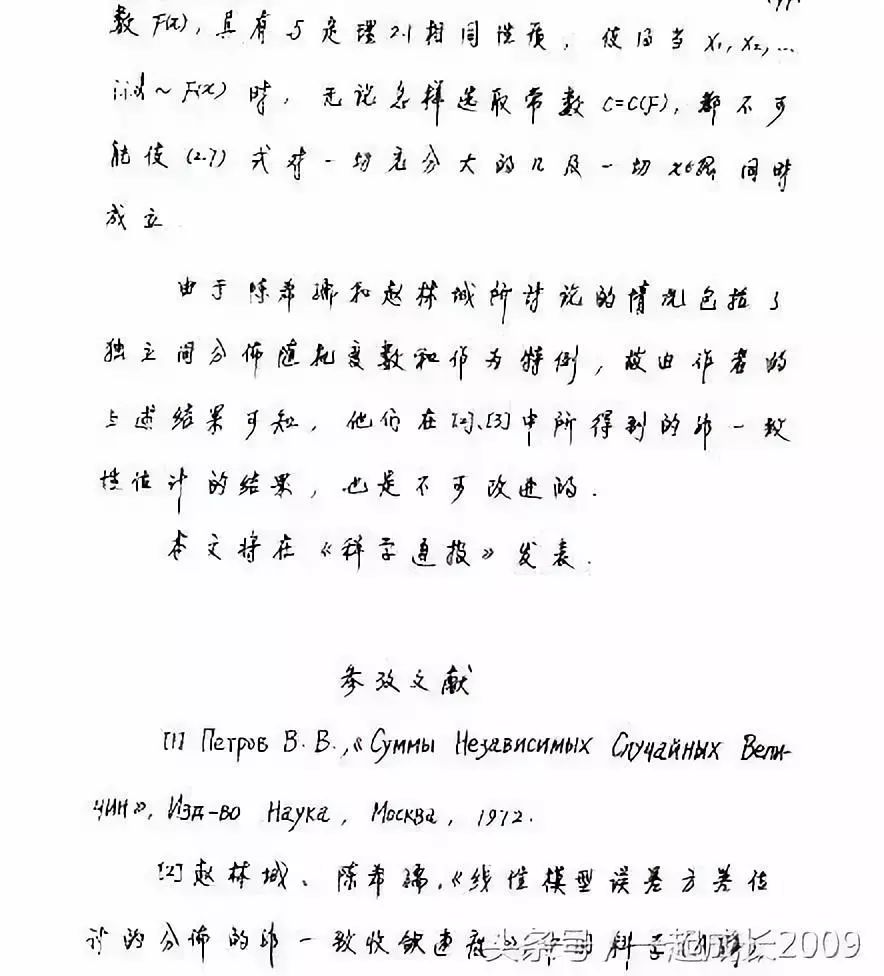 数 F(x), 具有与定理2.1相同性质, 使得当 X₁, X₂, …
iid ~ F(x) 时, 无论怎样选取常数 C=C(F), 都不可
能使 (2.7) 式对一切充分大的 n 及一切 x∈ 同时
成立
由于陈希孺和赵林城所讨论的情况包括了
独立同分佈随机变数和作为特例, 故由作者的
上述结果可知, 他们在[2]、[3]中所得到的非一致
性估计的结果, 也是不可改进的.
本文将在《科学通报》发表.
参考文献
[1] Петров В. В.,《Суммы Независимых Случайных Вели-
чин》, Изд-во Наука, Москва, 1972.
[2] 赵林城、陈希孺,《线性模型误差方差估
计的分佈的非一致收敛速度》, 中国科学
头条号 / 一起成长2009